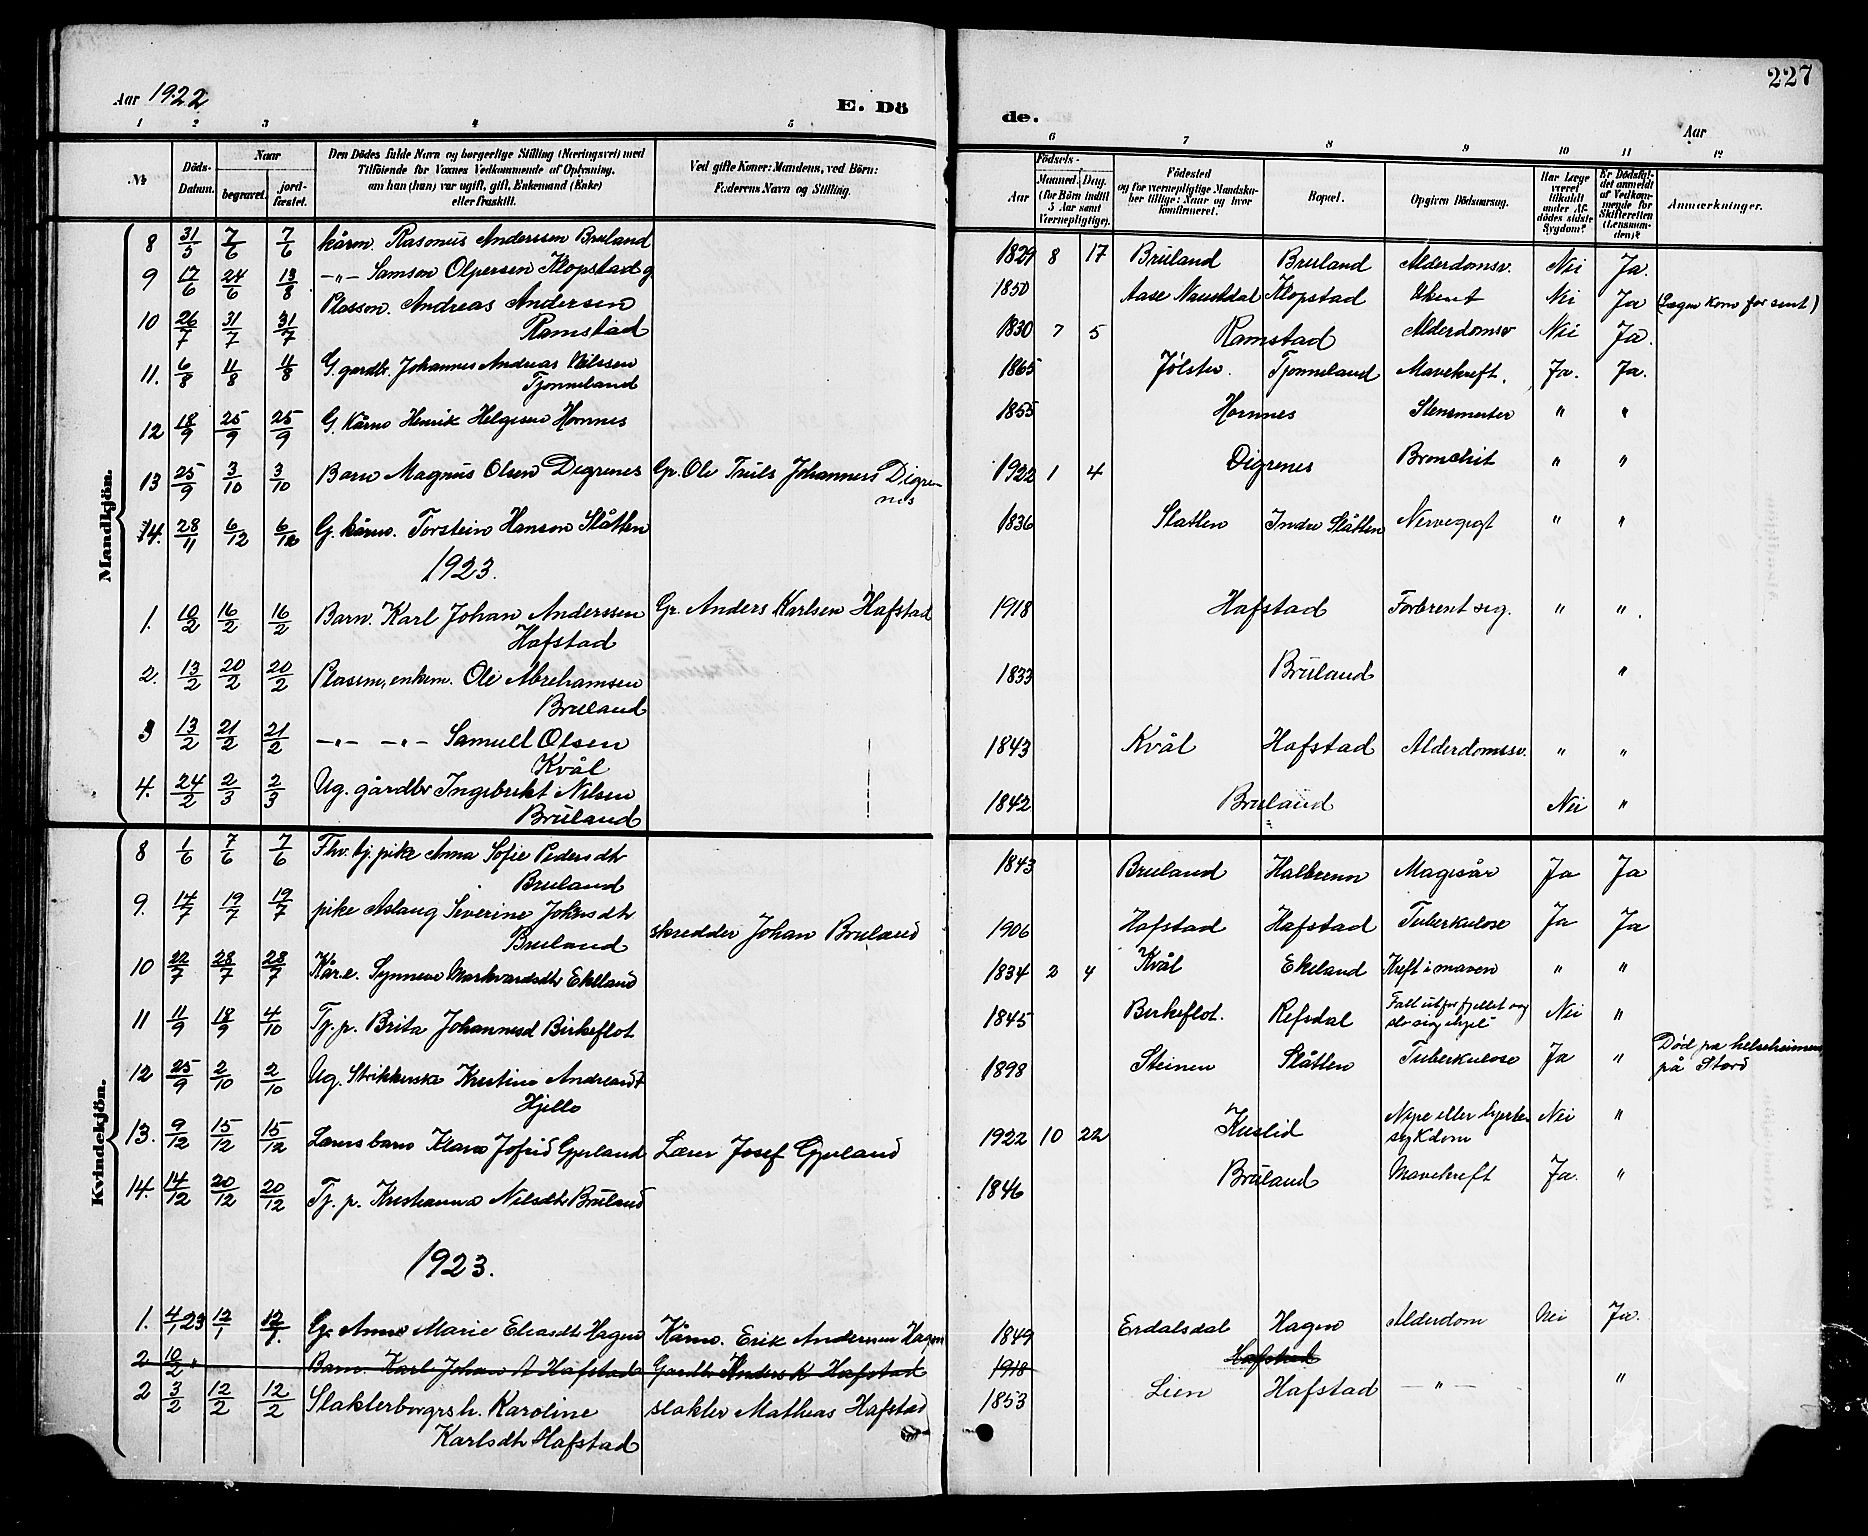 Aar 1922
E. Dö
de.
Aar
227
1 2 3 4 5 6 7 8 9 10 11 12
№
Döds-Datum.
Naar
begravet.
jord-fæstet.
Den Dödes fulde Navn og borgerlige Stilling (Næringsvei) med
Tilföiende for Voxnes Vedkommende af Oplysning,
om han (hun) var ugift, gift, Enkemand (Enke)
eller fraskilt.
Ved gifte Koner: Mandens, ved Börn:
Faderens Navn og Stilling.
Födsels-
Aar
Maaned. Dag.
(for Börn indtil
5 Aar samt
Værnepligtige).
Födested
og for værnepligtige Mandskaber
tillige: Naar og hvor
konfirmeret.
Bopæl.
Opgiven Dödsaarsag.
Har Læge
været
tilkaldt
under Af-
dödes sidste
Sygdom?
Er Dödsfaldet
anmeldt
af Vedkom-
mende for
Skifteretten
(Lensman-
den)?
Anmærkninger.
Mandkjön.
8 31/5 7/6 7/6 kårm. Rasmus Anderssen Bruland 1829 8 17 Bruland Bruland Alderdomsv. Nei Ja.
9 17/6 24/6 13/8 -"- Samson Olpersen Klopstad g 1850 Aase Naustdal Klopstad Ukent Nei Ja (Lægen kom for sent)
10 26/7 31/7 31/7 Plassm. Andreas Andersen
Ramstad 1830 7 5 Ramstad Alderdomsv Nei Ja.
11. 6/8 11/8 11/8 G. gardbr. Johannes Andreas Nilssen
Tjonneland 1865 Jølster. Tjonneland Mavekreft. Ja. Ja.
12 18/9 25/9 25/9 G. Kårm Henrik Helgesen Hornnes 1855 Hornnes Stensmerter " "
13 25/9 3/10 3/10 Barn Magnus Olsen Digrenes Gr. Ole Truls Johannes Digre-
nes 1922 1 4 Digrenes Bronchit " "
14. 28/11 6/12 6/12 G. kårm. Torstein Hanson Slåtten 1836 Slatten Indre Slåtten Nervegigt " "
1923.
1. 10/2 16/2 16/2 Barn. Karl Johan Anderssen
Hafstad Gr. Anders Karlsen Hafstad 1918 Hafstad Forbrent sig. " ".
2. 13/2 20/2 20/2 Plassm, enkem. Ole Abrehamsen
Bruland 1833 Bruland "
3 13/2 21/2 21/2 -"- -"- Samuel Olsen
Kvål 1843 Kvål Hafstad Alderdomssv. " "
4. 24/2 2/3 2/3 Ug. gårdbr Ingebrikt Nilsen
Bruland 1842 Bruland Nei "
Kvindekjön.
8 1/6 7/6 7/6 Fhv. tj. pike Anna Sofie Pedersdtr
Bruland 1843 Bruland Halbrenn Magesår Ja Ja
9. 14/7 19/7 19/7 pike Aslaug Severine Johansdtr
Bruland skredder Johan Bruland 1906 Hafstad Hafstad Tuberkulose Ja Ja
10 22/7 28/7 28/7 Kår.e. Synneve Markvardsdtr Ekeland 1834 2 4 Kvål Ekeland Kreft i maven " "
11 11/9 18/9 4/10 Tj. p. Brita Johannesd Birkeflot 1845 Birkeflot. Refsdal Falt utfor fjellet og
slo sig ihjel Nei "
12 25/9 2/10 2/10 Ug. Strikkerske Kristine Andreasdt
Hjelle 1898 Steinen Slåtten Tuberkulose Ja " Død på helseheimen
på Stord
13. 9/12 15/12 15/12 Lærersbarn Klara Jofrid Gjerland Lærer Josef Gjerland 1922 10 22 Kuslid Nyre eller hjerte
sykdom Nei "
14. 14/12 20/12 20/12 Tj. p. Kristianna Nilsdtr Bruland 1846 Bruland Mavekreft Ja. "
1923.
1. 4/1 23 12/1 12/1. Gr. Anne Marie Eliasdtr Hagen Kårm. Erik Andersen Hagen 1849 Erdalsdal Hagen Alderdom Nei Ja.
2 10/2 " Barn. Karl Johan A Hafstad Gardbr Anders K Hafstad 1918 Hafstad
2 3/2 12/2 12/2 Slakterborgersk. Karoline
Karlsdtr Hafstad slakter Mathias Hafstad 1853 Lien Hafstad -"- "